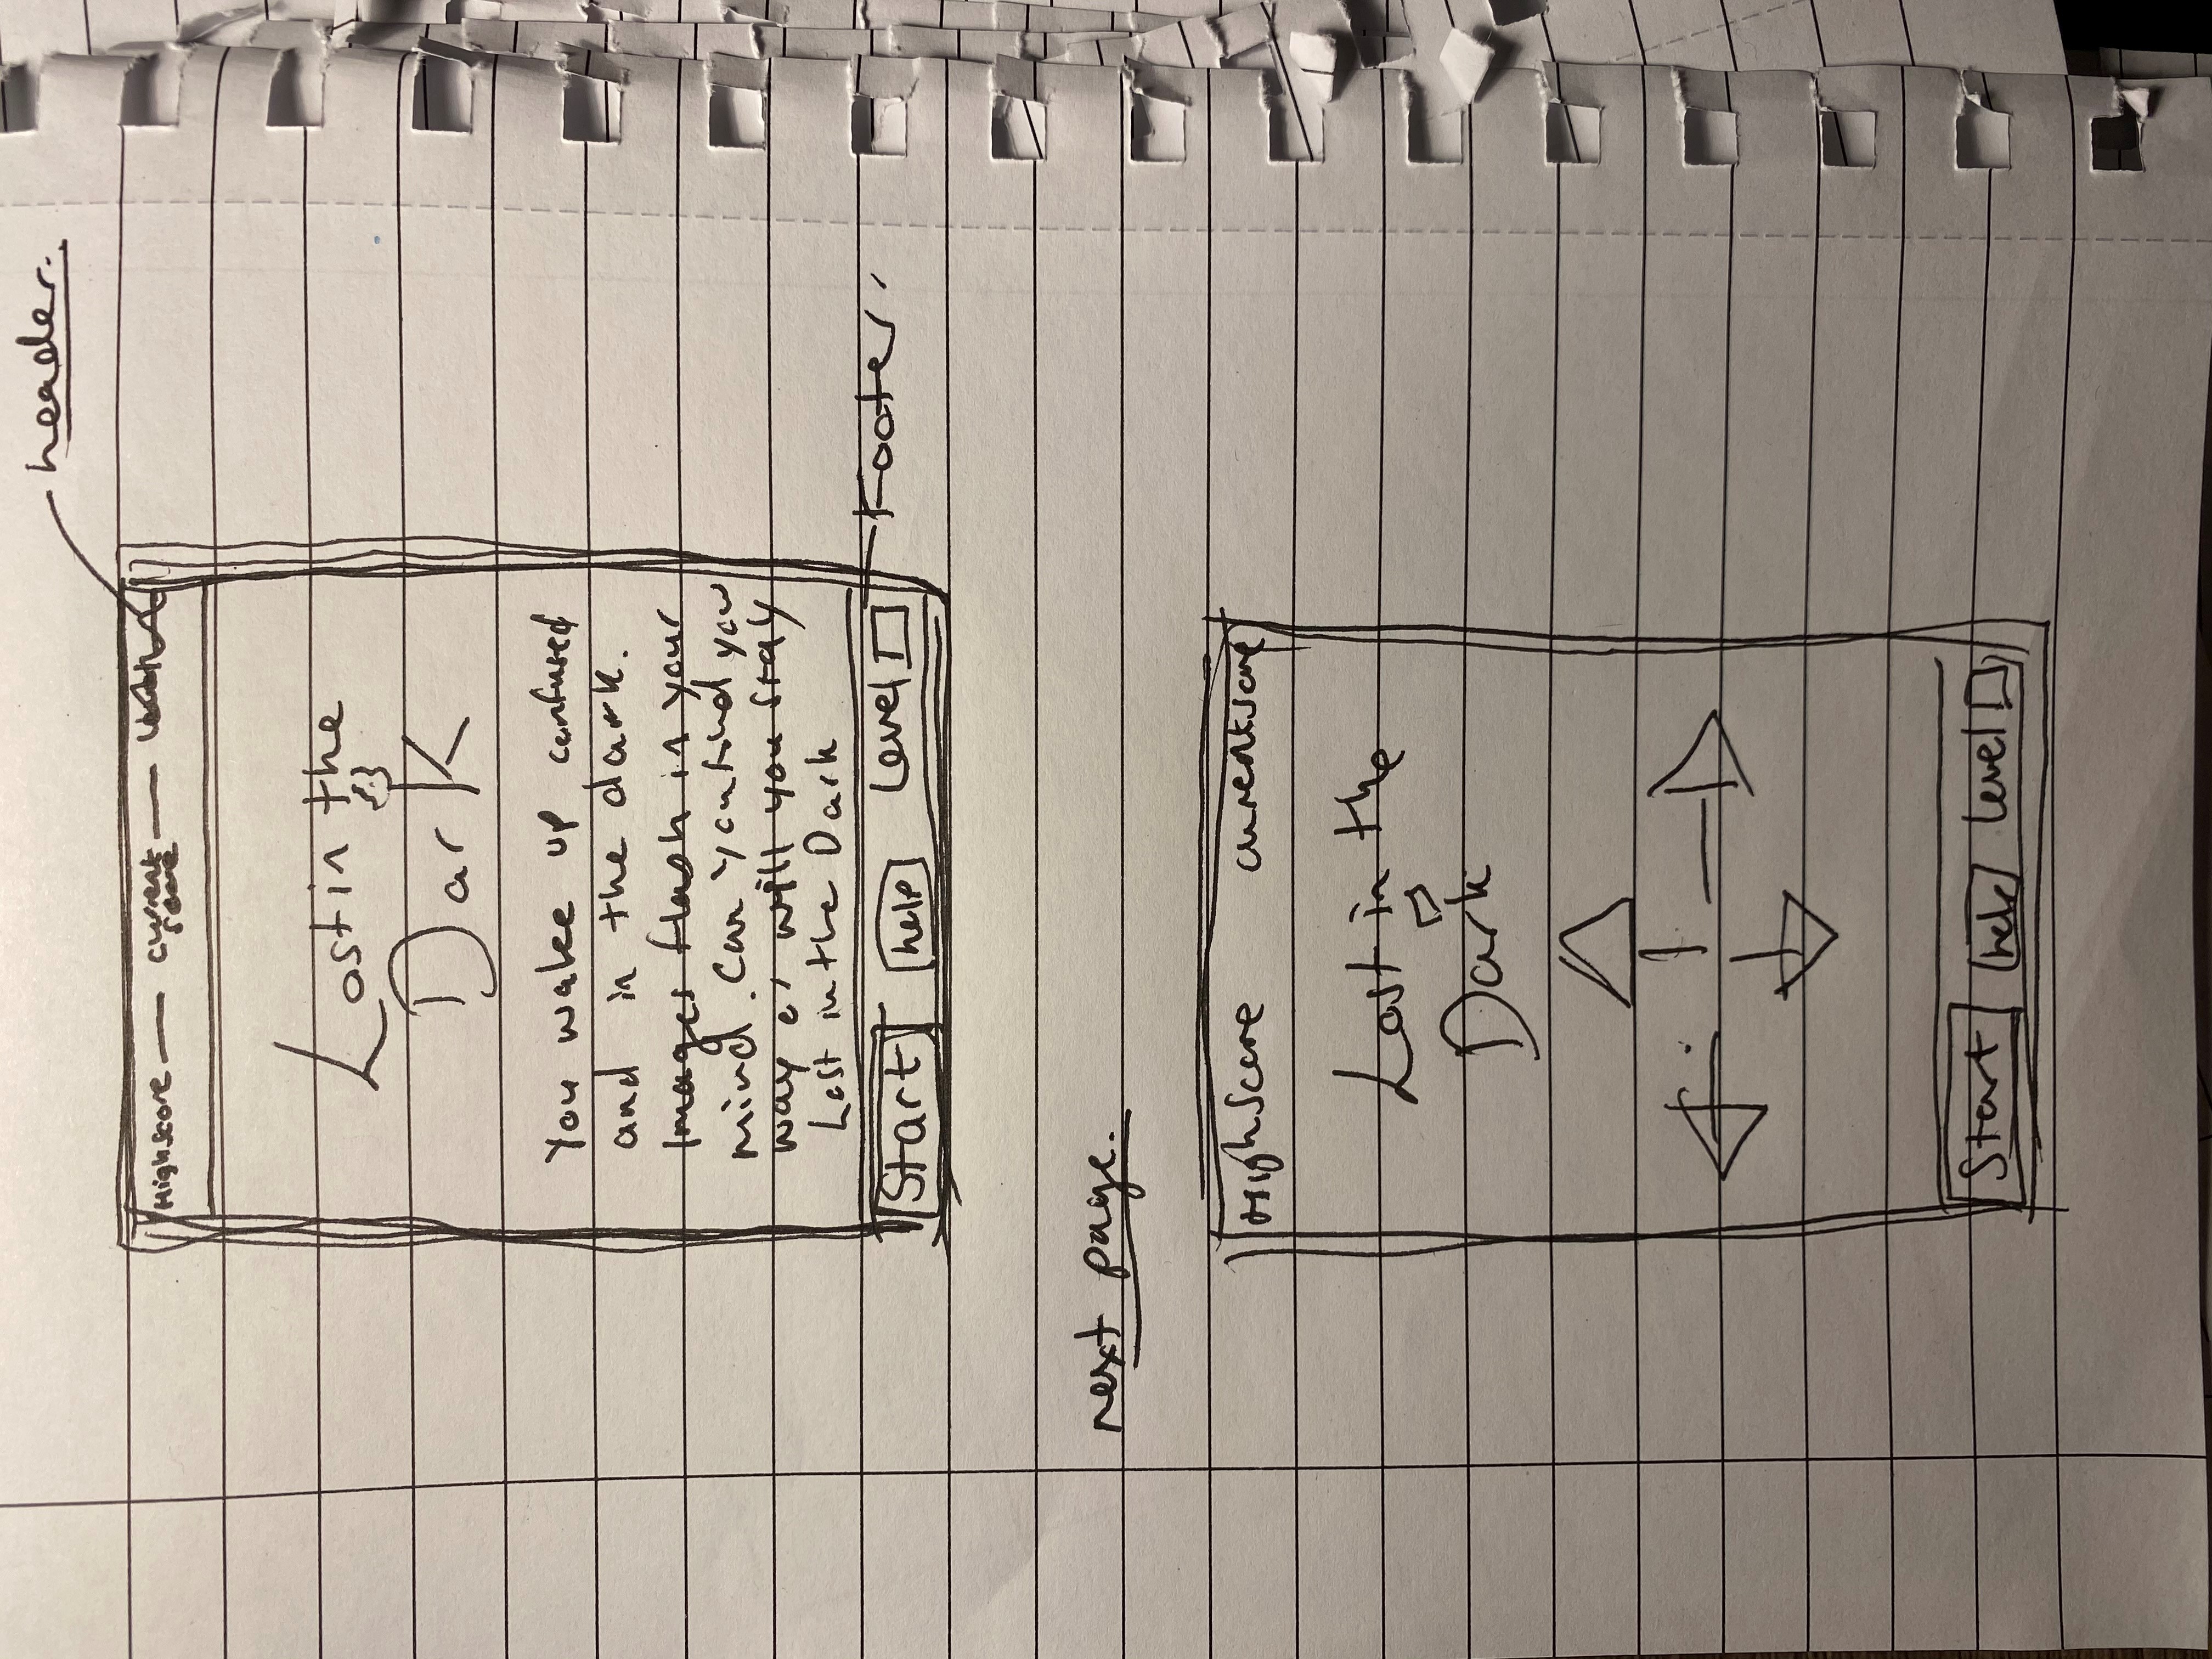 header.
Highscore — current — 
score
Lost in the
Dark
You wake up confused
and in the dark.
Images flash in your
mind. Can you find your
way or will you stay
Lost in the Dark
Start help Level
Footer.
next page.
HighScore currentscore
Lost in the
Dark
Start help level